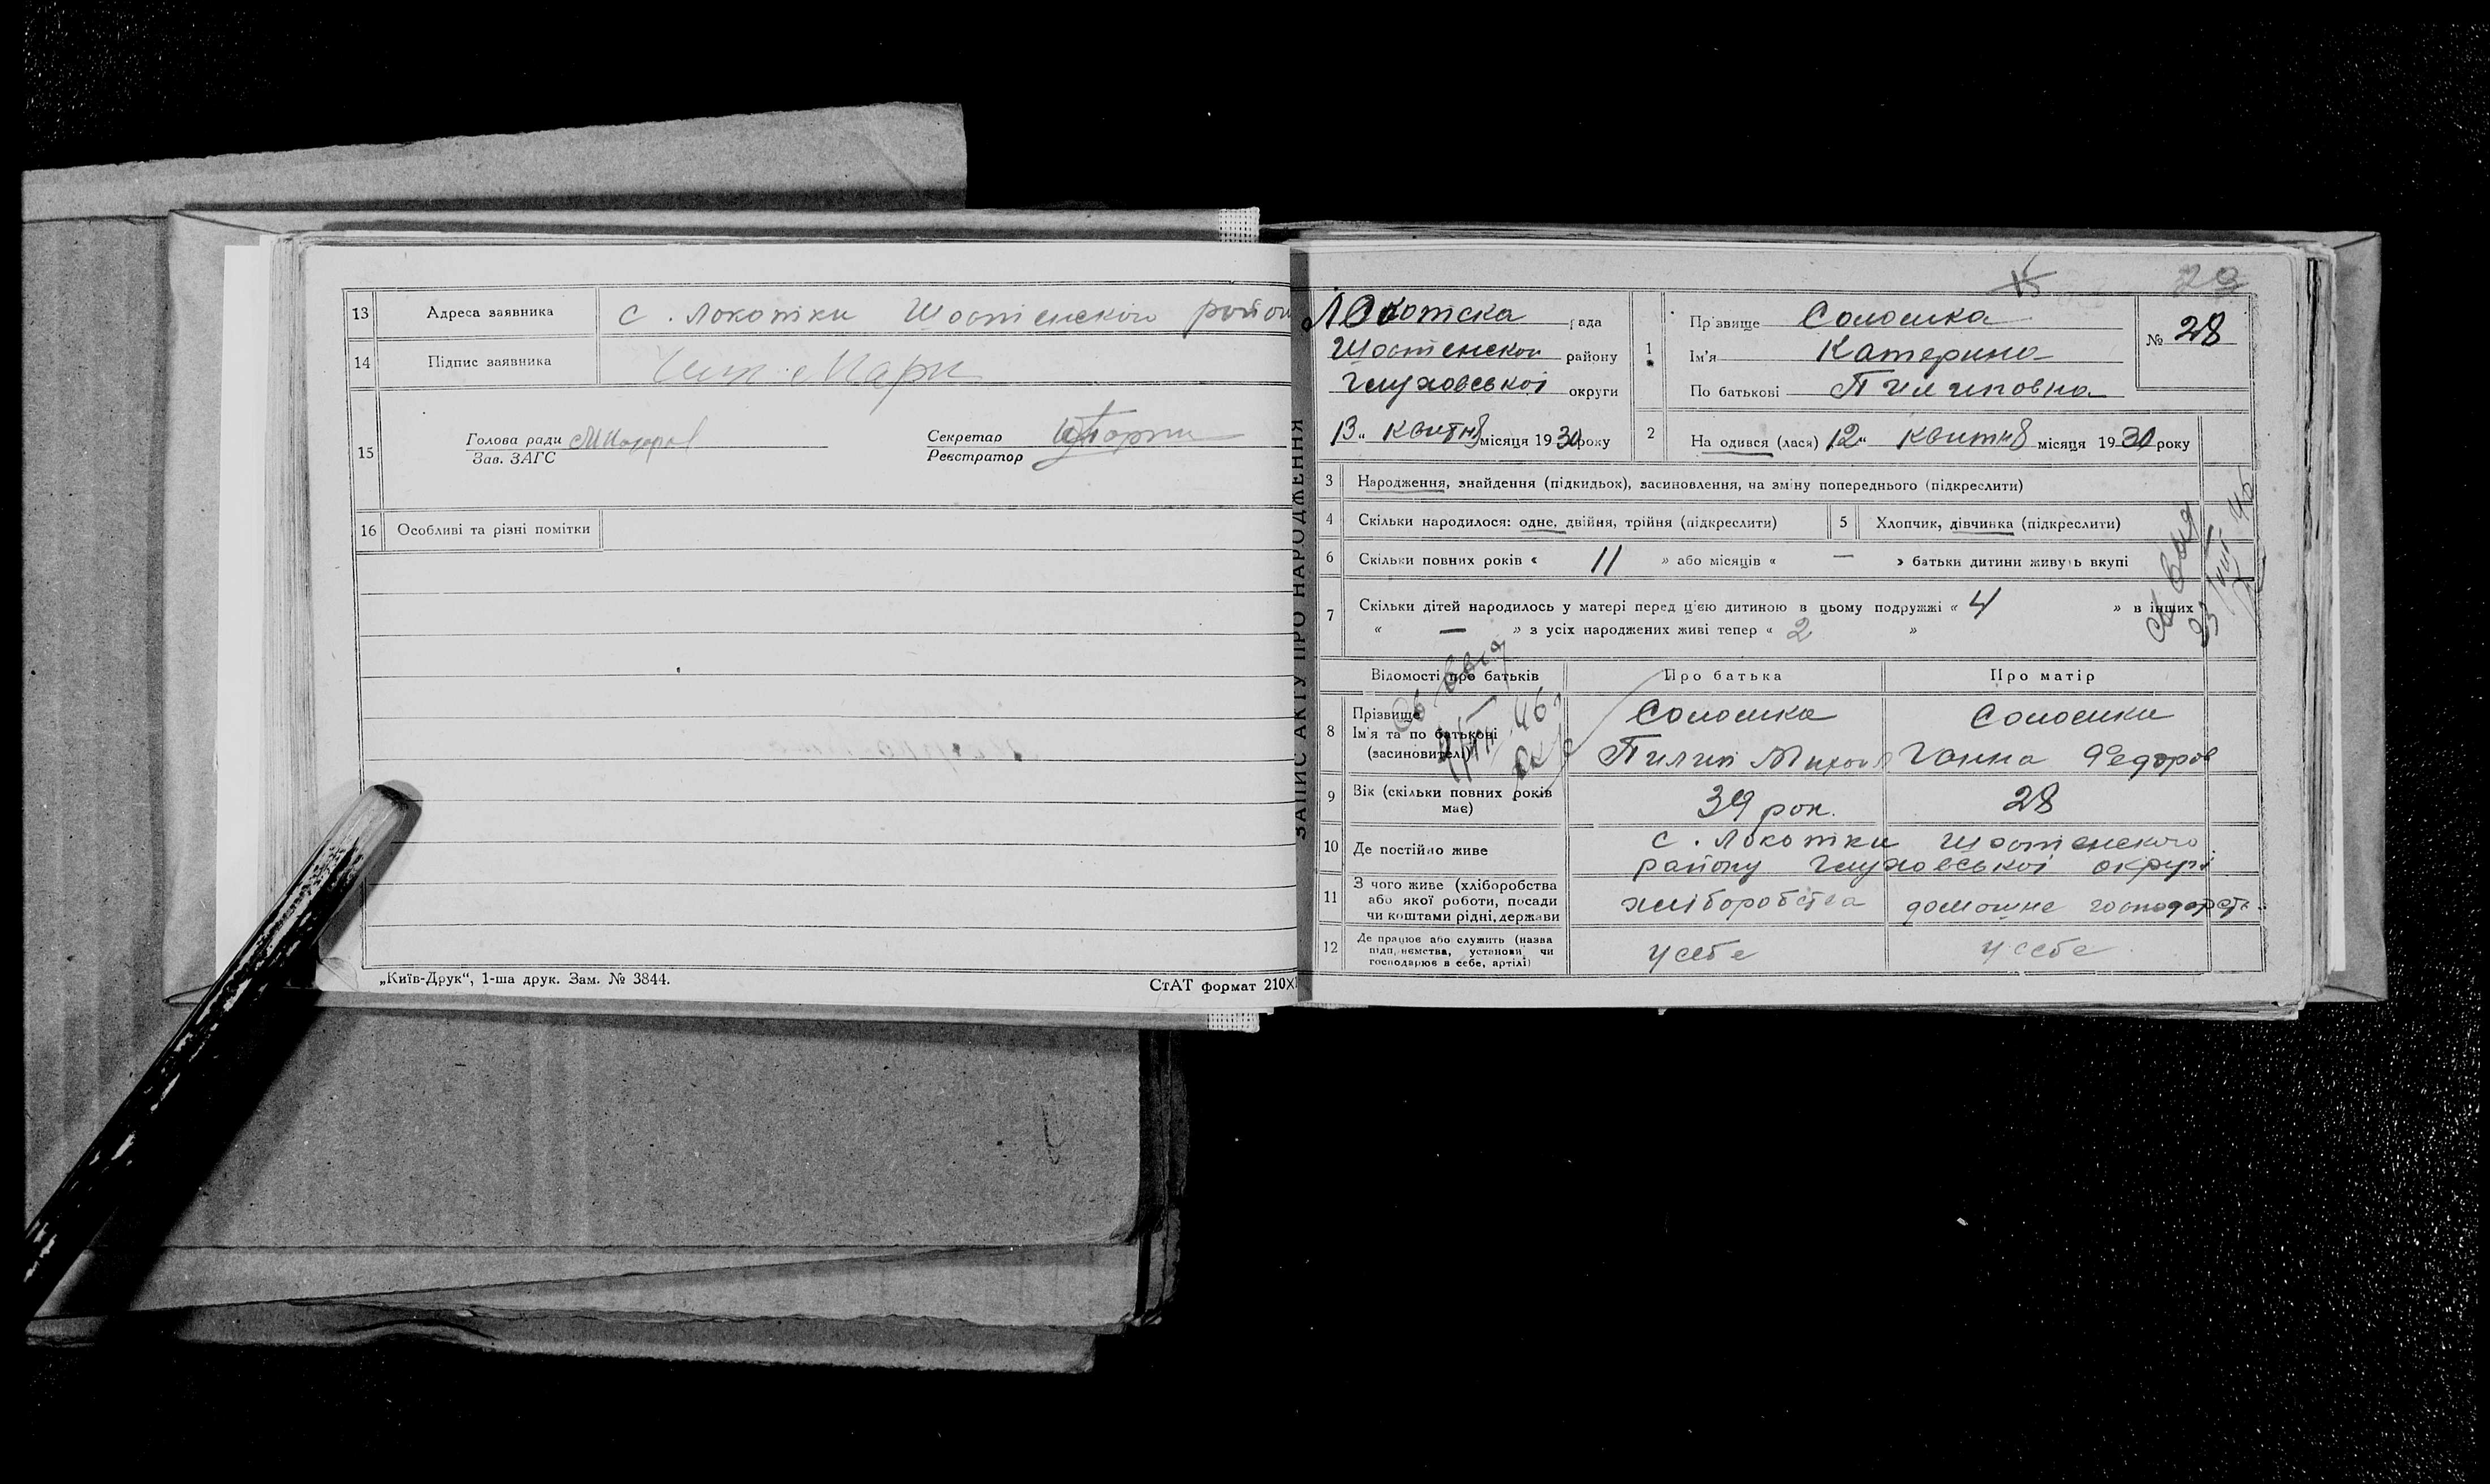 13 Адреса заявника с. Локотки Шостенского район
14 Підпис заявника
15 Голова ради
Зав. ЗАГС
Секретар
Реєстратор
16 Особливі та різні помітки
„Київ-Друк“, 1-ша друк. Зам. № 3844.
СтАТ формат 210Х
ЗАПИС АКТУ ПРО НАРОДЖЕННЯ
29
Локотска рада
Шостенског району
Глуховської округи
13 „ квітня місяця 1930 року
1 Прізвище Солошка
Ім'я Катерина
По батькові Пилиповна
№ 28
2 На одився (лася) 12 „ квитня місяця 1930 року
3 Народження, знайдення (підкидьок), засиновлення, на зміну попереднього (підкреслити)
4 Скільки народилося: одне, двійня, трійня (підкреслити)
5 Хлопчик, дівчинка (підкреслити)
6 Скільки повних років « 11 » або місяців « — » батьки дитини живуть вкупі
7 Скільки дітей народилось у матері перед ц'єю дитиною в цьому подружжі « 4 » в інших
« — » з усіх народжених живі тепер « 2 »
Відомості про батьків Про батька Про матір
8 Прізвище
Ім'я та по батькові
(засиновителі)
Солошка
Пилип Михайл
Солошки
Ганна Федоров
9 Вік (скільки повних років
має)
39 рок. 28
10 Де постійно живе с. Локотки Шостенского
району Глуховської округи
11 З чого живе (хліборобства
або якої роботи, посади
чи коштами рідні, держави
хліборобства домошне господарств
12 Де працює або служить (назва
підприємства, установи чи
господарює в себе, артілі)
у себе у себе